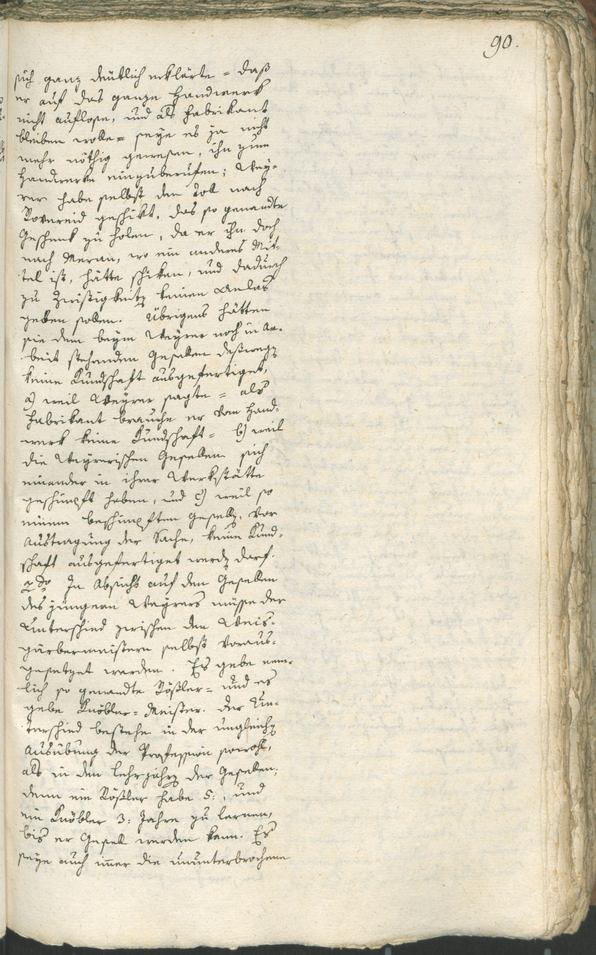 90.
sich ganz deutlich erklärte = daß
er auf das ganze Handwerk
nicht auflose, und als Fabrikant
bleiben wolle = seye es ja nicht
mehr nöthig gewesen, ihn zum
Handwerke einzuberufen; Wey-
rer habe selbst den Bot nach
Rovereid geschikt, das so genandte
Geschenk zu holen, da er ihn doch
nach Meran, wo ein anderes Mit-
tel ist, hätte schiken, und dadurch
zu Zwistigkeitn keinen Anlas
geben sollen. Übrigens hätten
sie dem beym Weyrer noch in Ar-
beit stehenden Gesellen deßwegn
keine Kundschaft ausgefertiget,
a) weil Weyrer sagte = als
Fabrikant brauche er von Hand-
werk keine Kundschaft = b) weil
die Weyrerischen Gesellen sich
einander in ihrer Werkstätte
geschimpft haben, und c) weil so
einem beschimpften Geselln, vor
Austragung der Sache, keine Kund-
schaft ausgefertiget werdn darf.
2do In Absicht auf den Gesellen
des jüngern Weyrers müsse der
Unterschied zwischen den Weis-
gärbermeistern selbst voraus-
gesetzet werden. Es gebe nem-
lich so genandte Rößler = und es
gebe Knöbler = Meister. Der Un-
terschied bestehe in der ungleichn
Ausübung der Profession sowohl,
als in den Lehrjahrn der Gesellen;
denn ein Rößler habe 5:, und
ein Knöbler 3: Jahre zu lernen,
bis er Gesell werden kann. Es
seye auch immer die ununterbrochene